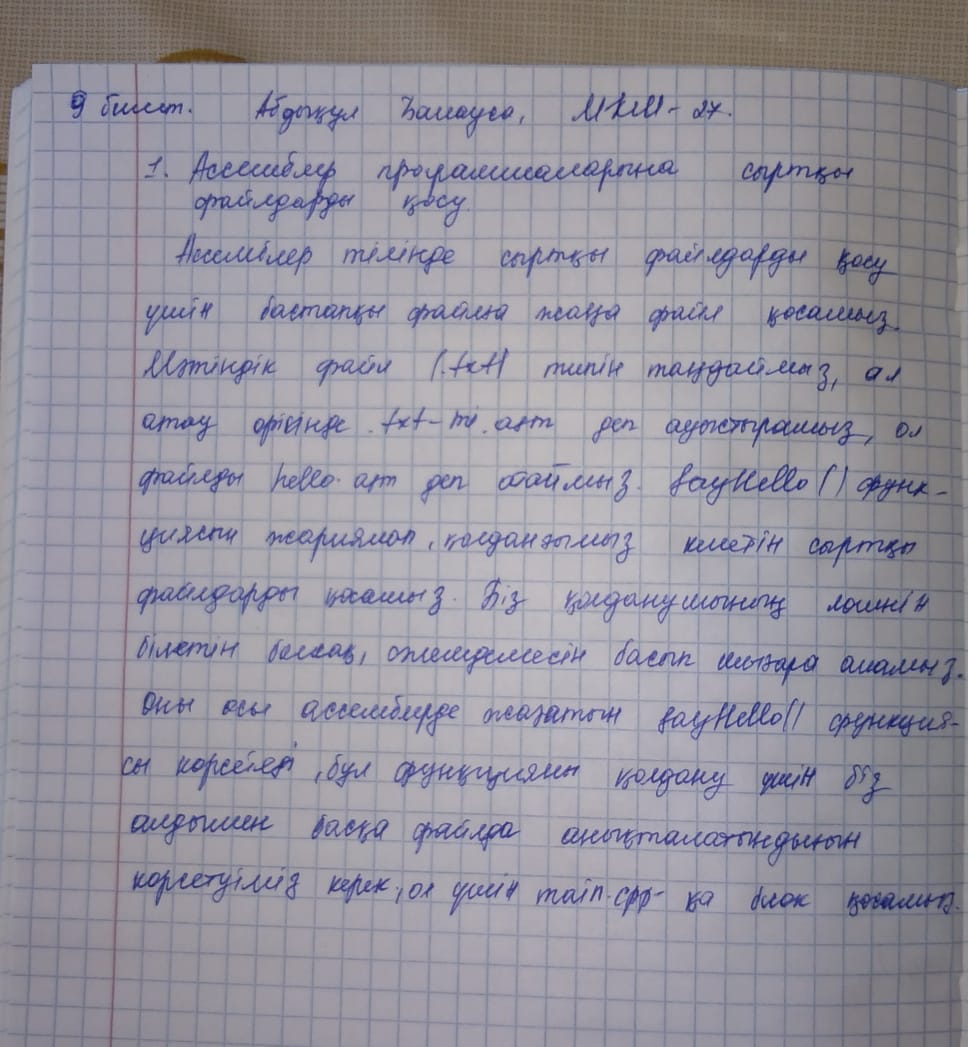 9 билет. Абдықул Балауса, МКМ-27.
1. Ассемблер программаларына сыртқы
файлдарды қосу.
Ассемблер тілінде сыртқы файлдарды қосу
үшін бастапқы файлға жаңа файл қосамыз.
Мәтіндік файл (.txt) типін таңдаймыз, ал
атау өрісінде .txt-ті .asm деп ауыстырамыз, ол
файлды hello.asm деп атаймыз. sayHello() функ-
циясын жариялап, қолданғымыз келетін сыртқы
файлдарды қосамыз. Біз қолданушының
білетін болсақ, сәлемдемесін басып шығара аламыз.
Оны осы ассемблерде жазатын sayHello() функция-
сы көрсетеді, бұл функцияны қолдану үшін біз
алдымен басқа файлда анықталатындығын
көрсетуіміз керек, ол үшін main.cpp-ға блок қосамыз.